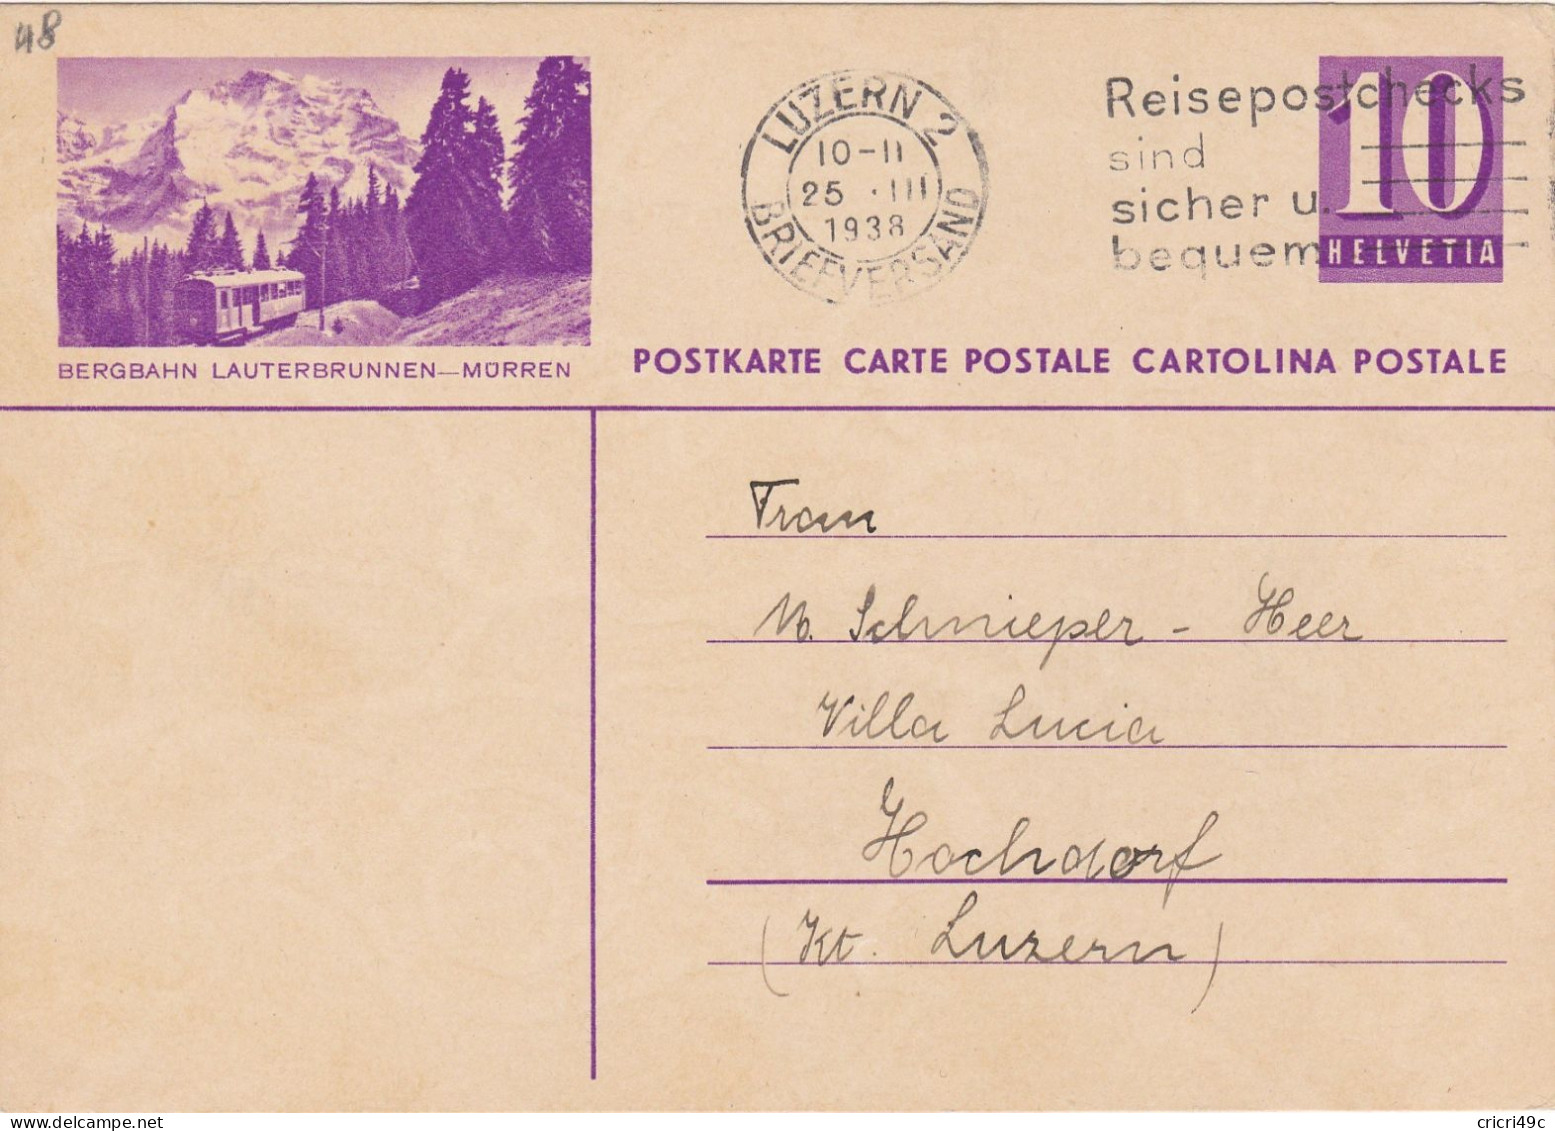 48
LUZERN 2
10-11
25. III
1938
BRIEFVERSAND
Reisepostchecks
sind
sicher u.
bequem
10
HELVETIA
BERGBAHN LAUTERBRUNNEN—MÜRREN
POSTKARTE CARTE POSTALE CARTOLINA POSTALE
Frau
M. Schnieper - Heer
Villa Lucia
Hochdorf
(Kt. Luzern)
cricri49c